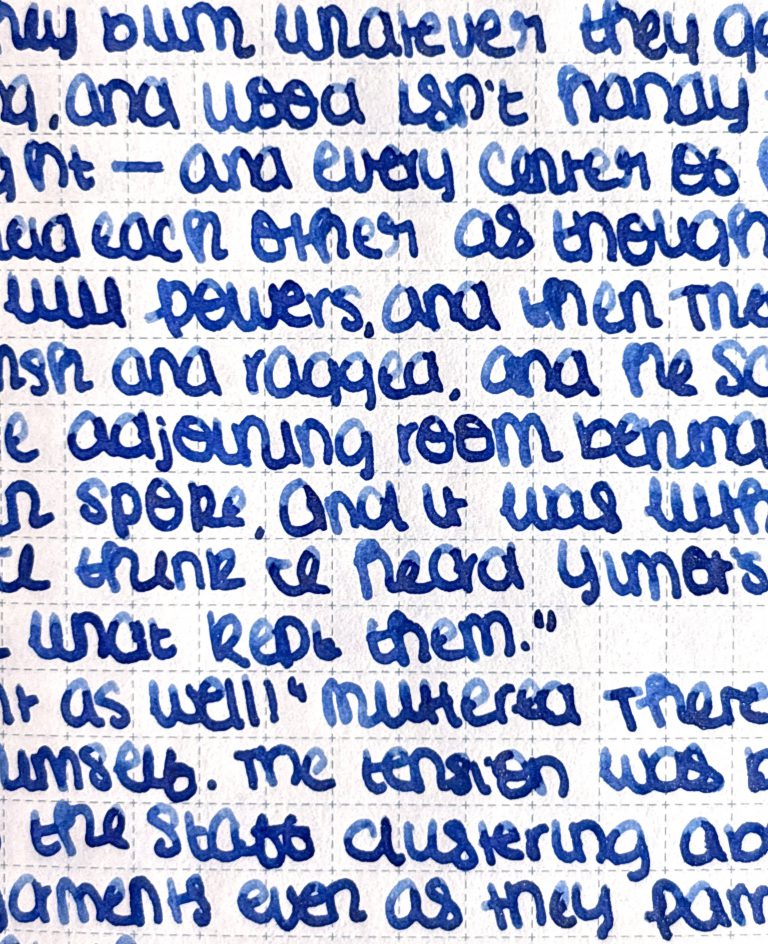 hey burn whatever they ge
and wood isn't handy
ght — and every center of
each other as though
powers, and then The
and ragged, and he sc
e adjoining room behind
spoke. And it was with
think I heard Yimot's
what kept them."
as well!" muttered There
himself. The tension was
the staff clustering abo
garments even as they pam